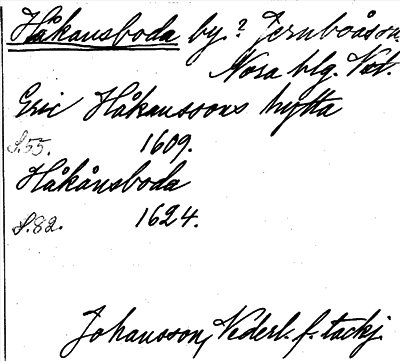 Håkansboda by? Jernboås sn
Nora blg. Vstl.
Eric Håkanssons hytta
S.55. 1609.
Håkånsboda
S.82. 1624.
Johansson, Nederl. f. tackj.